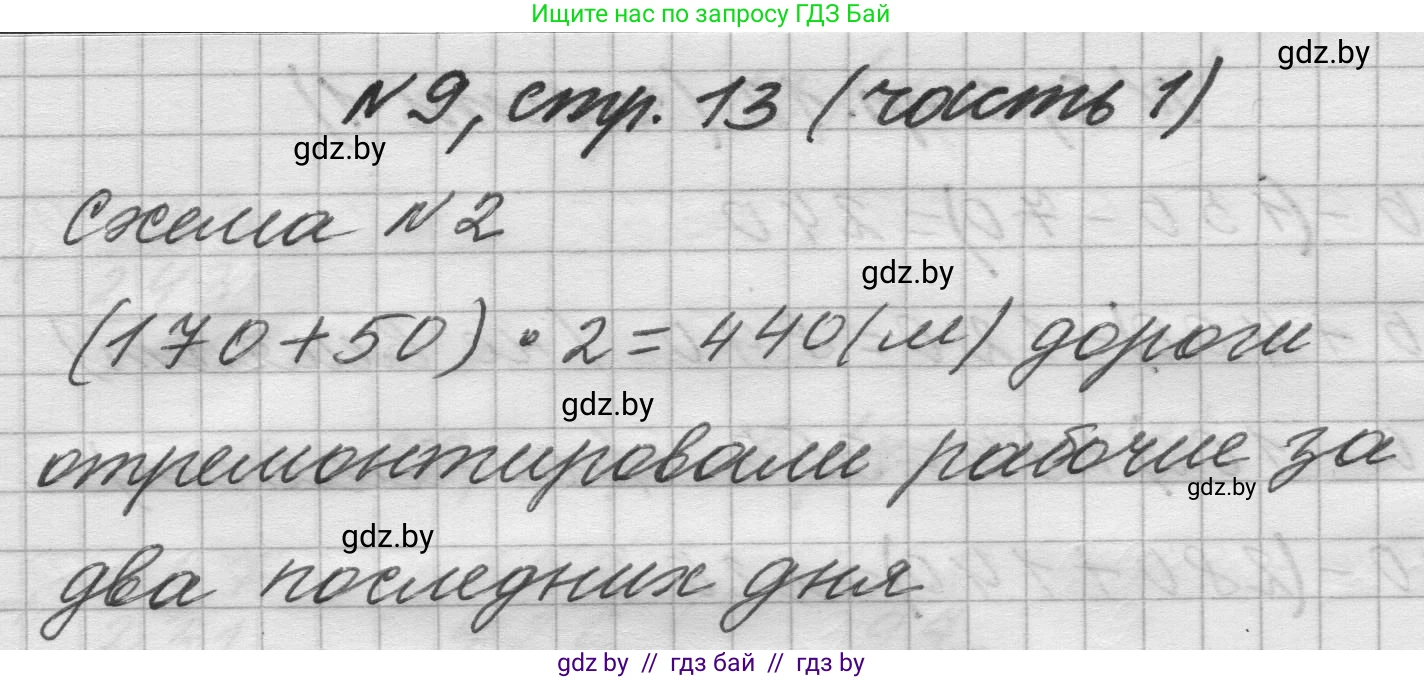 Ищите нас по запросу ГДЗ Бай
gdz.by
№9, стр. 13 (часть 1)
gdz.by
Схема №2
gdz.by
(170+50) · 2 = 440 (м) дороги
gdz.by
отремонтировали рабочие за
gdz.by
gdz.by
два последних дня
gdz by // гдз бай // гдз by